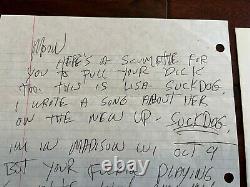 HERE'S A SOMETHING FOR
YOU TO PULL YOUR DICK
TOO THIS IS LISA SUCKDOG
I WROTE A SONG ABOUT HER
ON THE NEW LP - SUCKDOG
IM IN MADISON WI OCT 9
BUT YOUR PLAYING